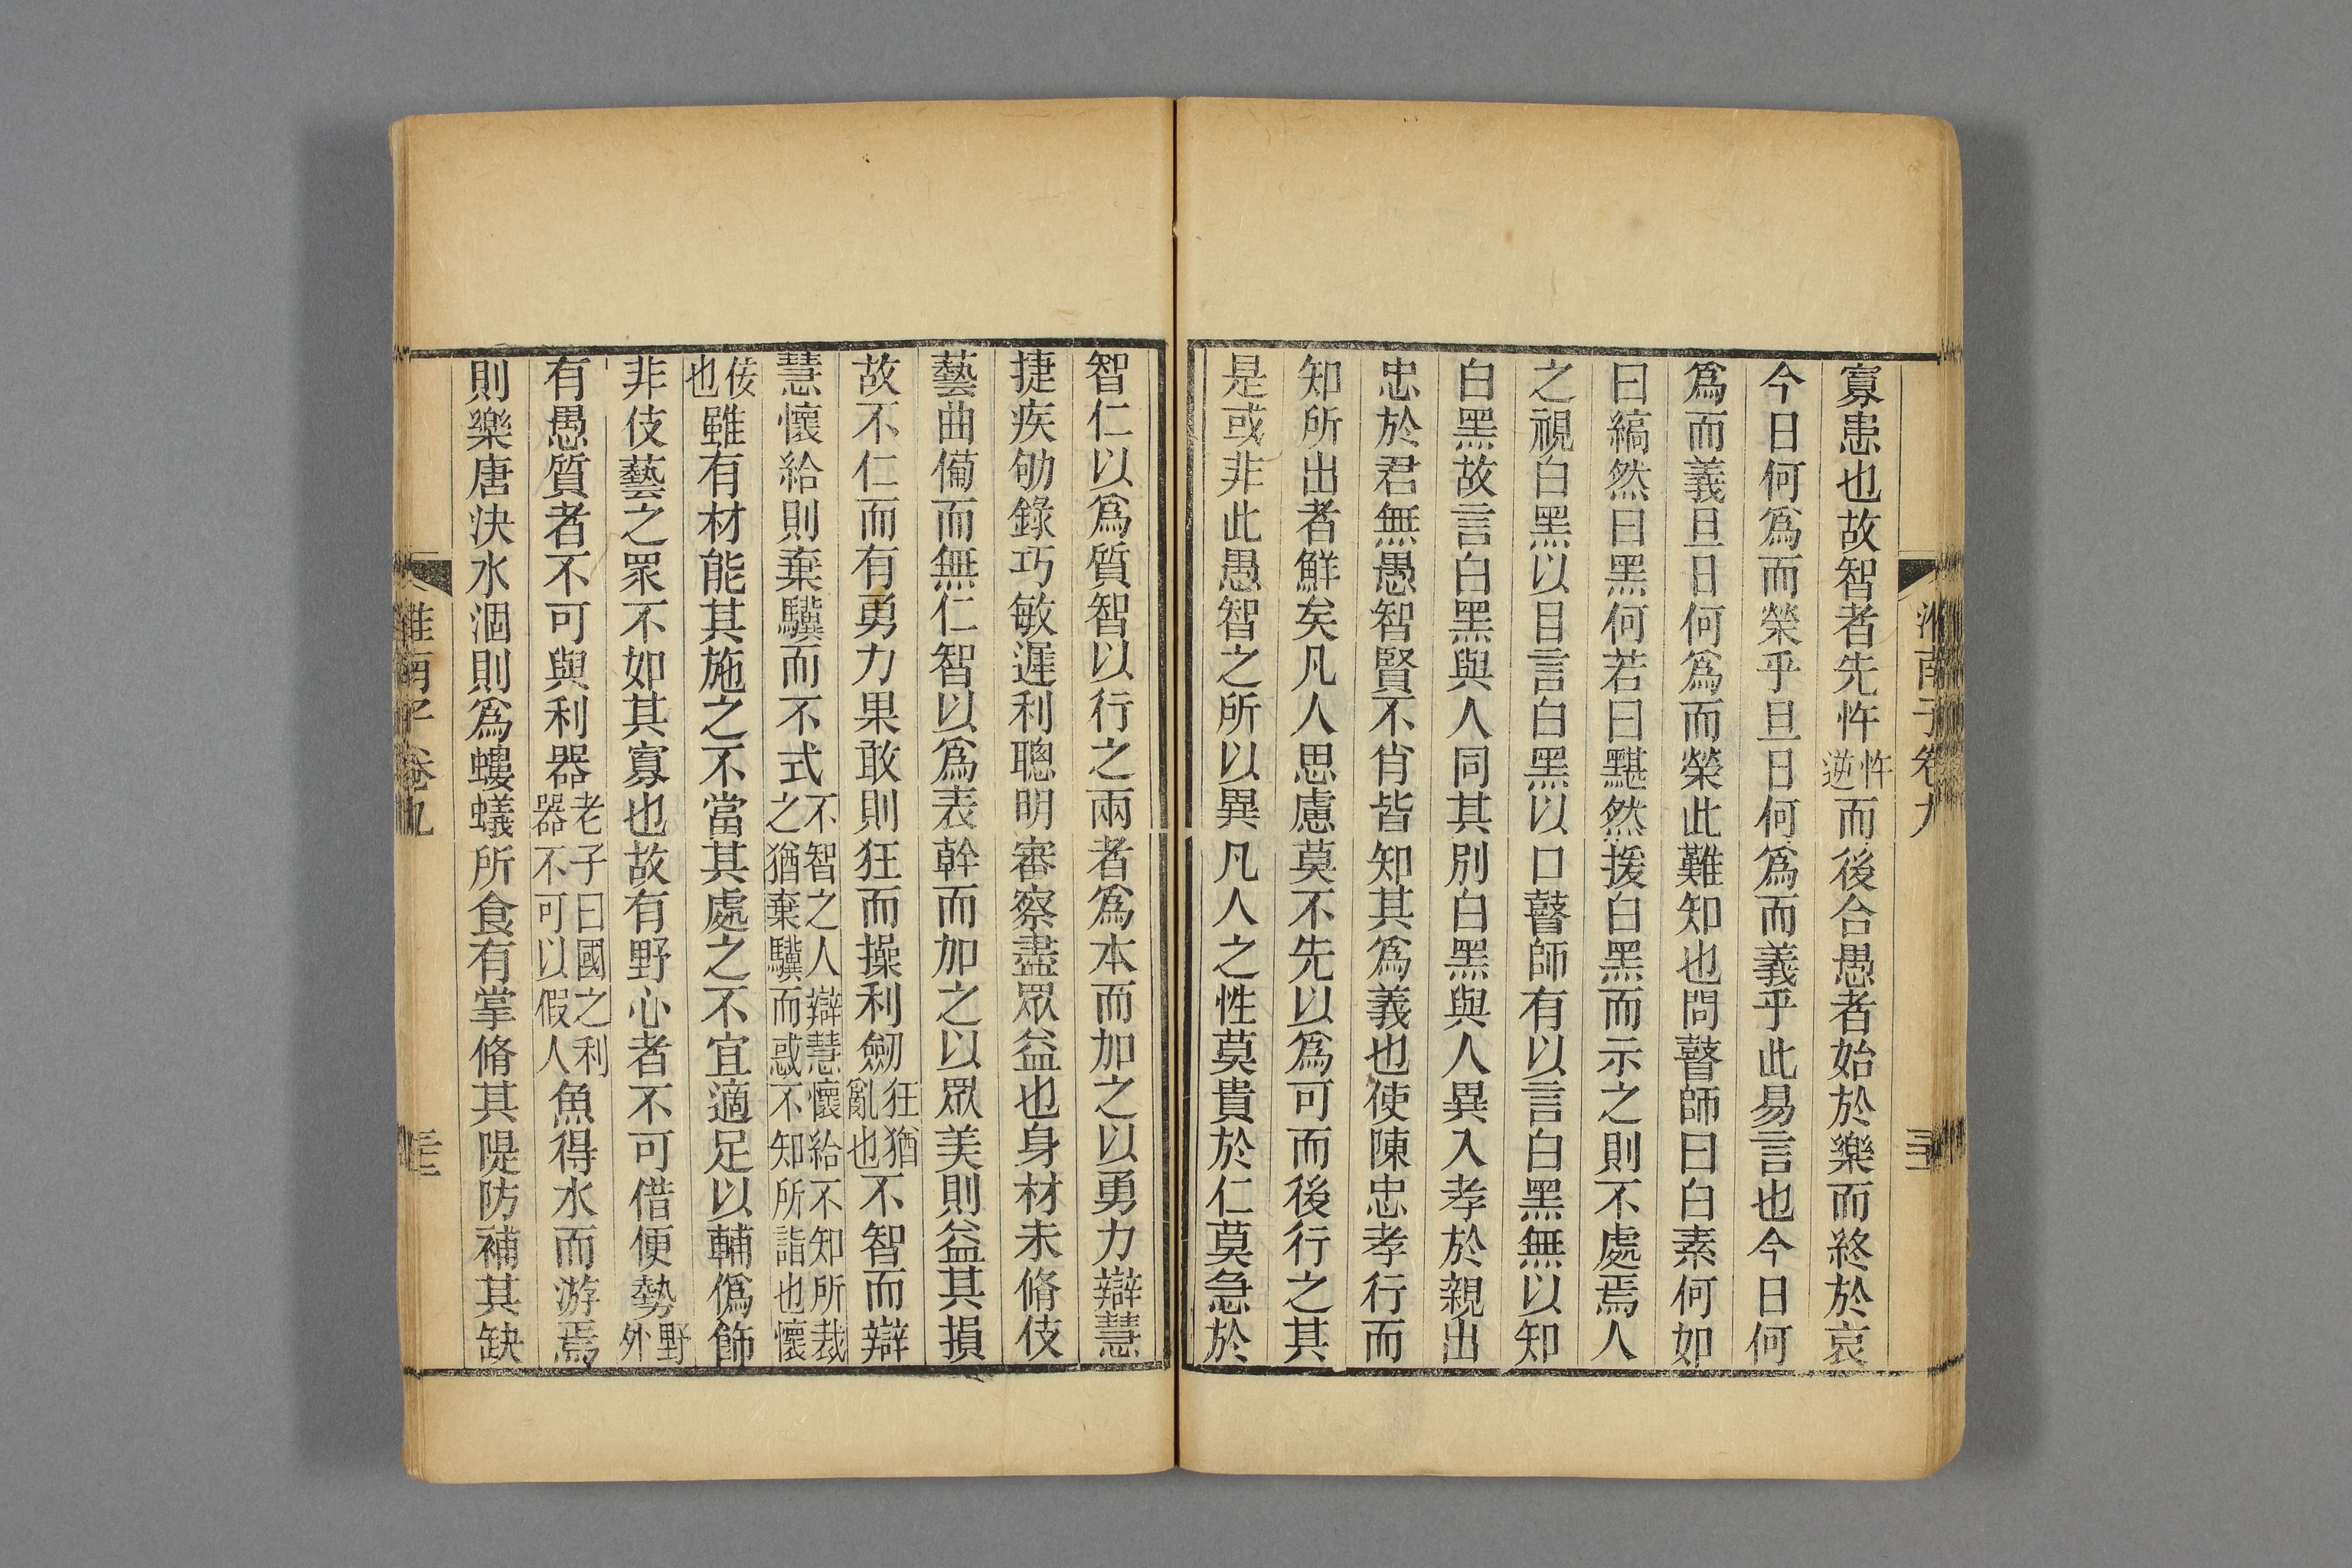 淮南子卷九
寡患也故智者先忤忤逆而後合愚者始於樂而終於哀
今日何爲而榮乎旦日何爲而義乎此易言也今日何
爲而義旦日何爲而榮此難知也問瞽師曰白素何如
曰縞然曰黑何若曰黮然援白黑而示之則不處焉人
之視白黑以目言白黑以口瞽師有以言白黑無以知
白黑故言白黑與人同其別白黑與人異入孝於親出
忠於君無愚智賢不肖皆知其爲義也使陳忠孝行而
知所出者鮮矣凡人思慮莫不先以爲可而後行之其
是或非此愚智之所以異凡人之性莫貴於仁莫急於
智仁以爲質智以行之兩者爲本而加之以勇力辯慧
捷疾劬錄巧敏遲利聰明審察盡眾益也身材未脩伎
藝曲備而無仁智以爲表幹而加之以眾美則益其損
故不仁而有勇力果敢則狂而操利劒狂猶亂也不智而辯
慧懷給則棄驥而不式不智之人辯慧懷給不知所裁之猶棄驥而惑不知所詣也懷
佞也雖有材能其施之不當其處之不宜適足以輔僞飾
非伎藝之眾不如其寡也故有野心者不可借便勢野外
有愚質者不可與利器老子曰國之利器不可以假人魚得水而游焉
則樂唐决水涸則爲螻蟻所食有掌脩其隄防補其缺
淮南子卷九